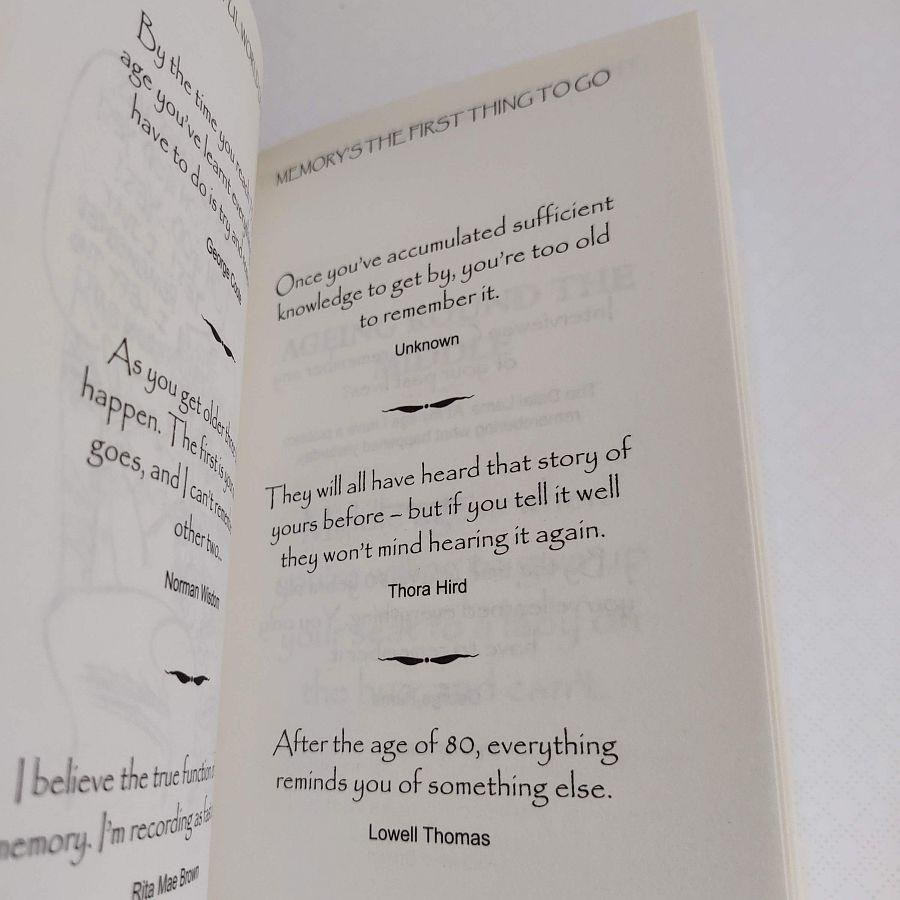 UL WORL
By the time you reach
age you've learnt everything
have to do is try and
George
As you get older three
happen. The first is your
goes, and I can't remember
other two...
Norman Wisdom
I believe the true function
memory. I'm recording as fast
Rita Mae Brown
MEMORY'S THE FIRST THING TO GO
Once you've accumulated sufficient
knowledge to get by, you're too old
to remember it.
Unknown
They will all have heard that story of
yours before – but if you tell it well
they won't mind hearing it again.
Thora Hird
After the age of 80, everything
reminds you of something else.
Lowell Thomas